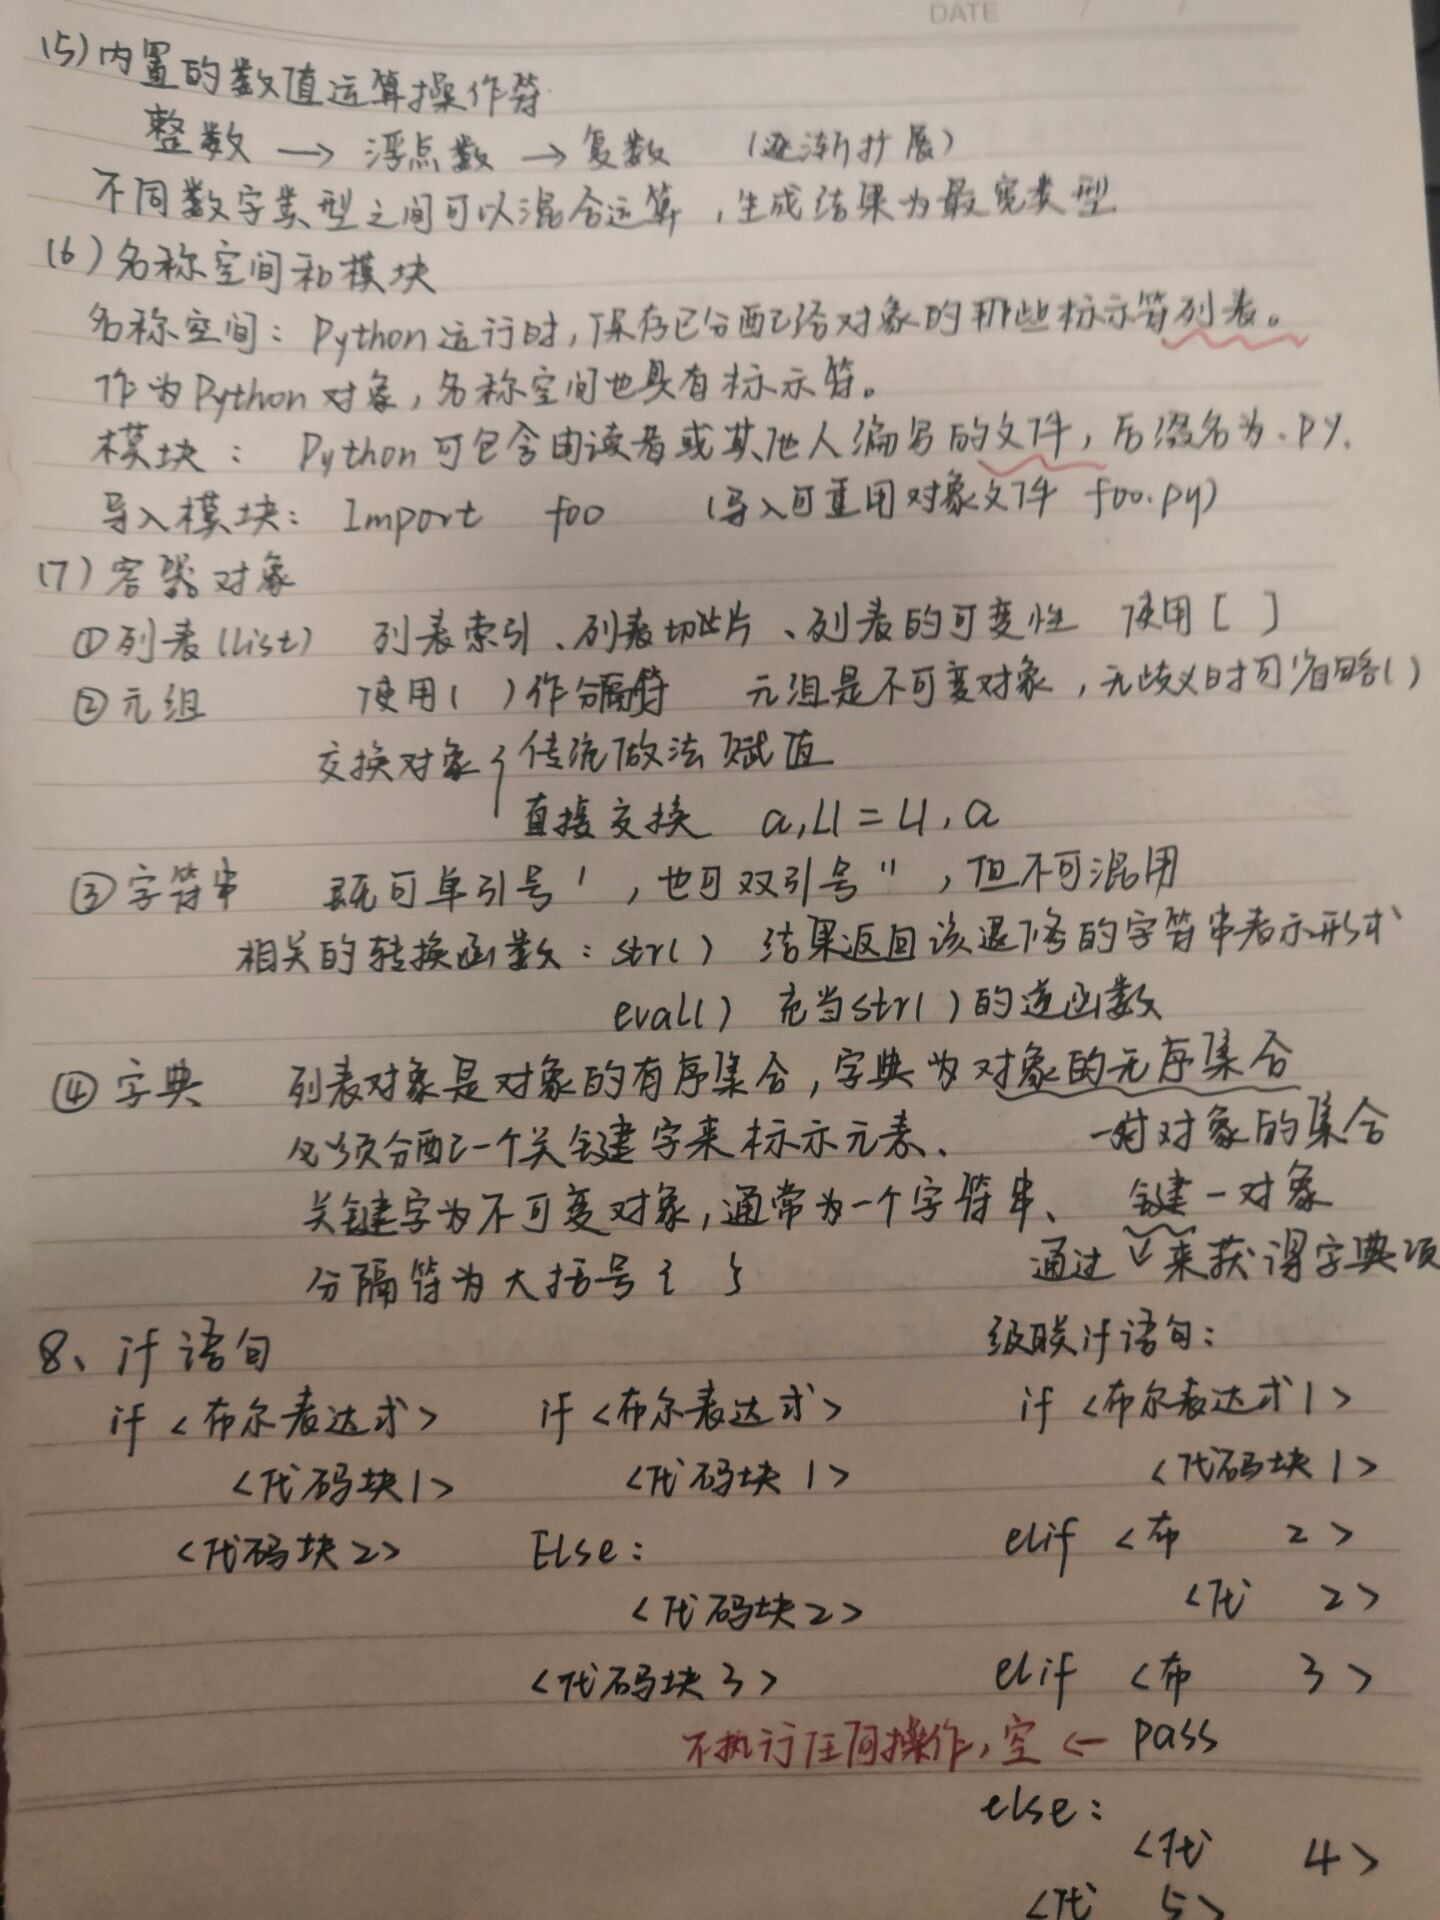 DATE / /
(5) 内置的数值运算操作符
整数 → 浮点数 → 复数 (逐渐扩展)
不同数字类型之间可以混合运算，生成结果为最宽类型
(6) 名称空间和模块
名称空间：Python运行时，保存已分配给对象的那些标示符列表。
作为Python对象，名称空间也具有标示符。
模块：Python可包含由读者或其他人编写的文件，后缀名为.py.
导入模块：Import foo (导入可重用对象文件 foo.py)
(7) 容器对象
①列表(list) 列表索引、列表切片、列表的可变性 使用[ ]
②元组 使用( )作分隔符 元组是不可变对象，无歧义时可省略( )
交换对象{传统做法 赋值
直接交换 a,b=b,a
③字符串 既可单引号'，也可双引号"，但不可混用
相关的转换函数：str() 结果返回该退修的字符串表示形式
eval() 充当str()的逆函数
④字典 列表对象是对象的有序集合，字典为对象的无序集合
必须分配一个关键字来标示元素、 一对对象的集合
关键字为不可变对象，通常为一个字符串、 键—对象
分隔符为大括号{ } 通过↓来获得字典项
8、if 语句 级联if语句：
if <布尔表达式> if <布尔表达式> if <布尔表达式1>
<代码块1> <代码块1> <代码块1>
<代码块2> Else: elif <布 2>
<代码块2> <代 2>
<代码块3> elif <布 3>
不执行任何操作，空 ← pass
else:
<代 4>
<代 5>